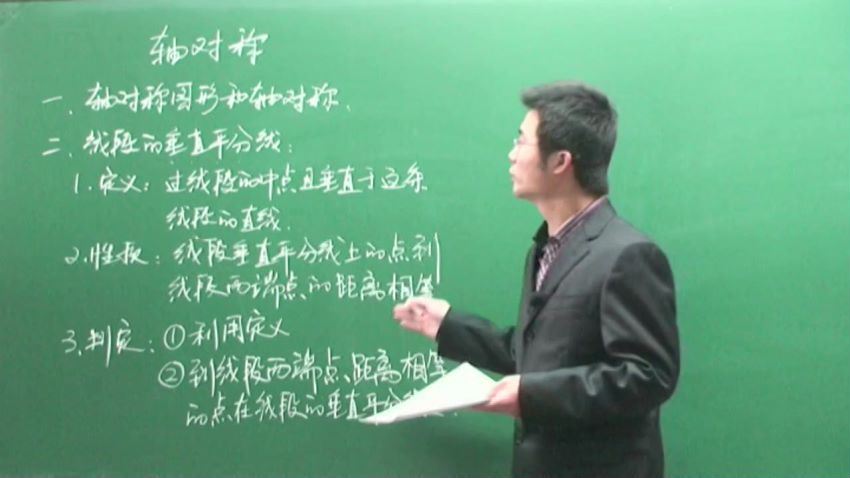 轴对称
一、轴对称图形和轴对称.
二、线段的垂直平分线:
1.定义:过线段的中点且垂直于这条
线段的直线.
2.性质:线段垂直平分线上的点到
线段两端点的距离相等
3.判定:①利用定义
②到线段两端点、距离相等
的点在线段的垂直平分